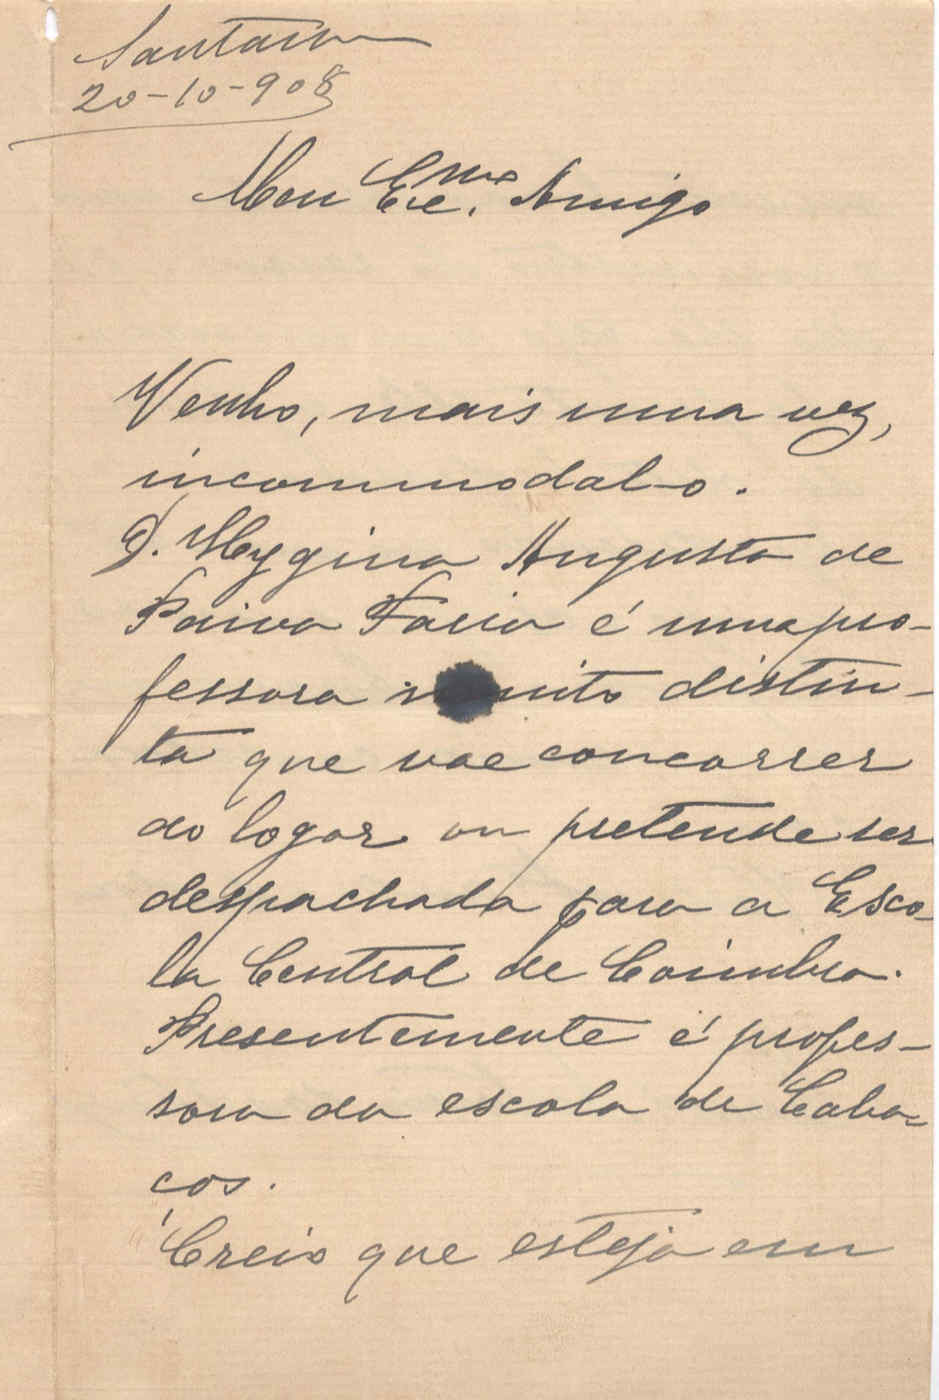 Santarem
20-10-908
Meu Exmo. Amigo
Venho, mais uma vez,
incommodal-o.
D. Hygina Augusta de
Paiva Faria é uma pro-
fessora muito distin-
ta que vae concorrer
ao logar ou pretende ser
despachada para a Esco-
la Central de Coimbra.
Presentemente é profes-
sora da escola de Caba-
ços.
Creio que esteja em